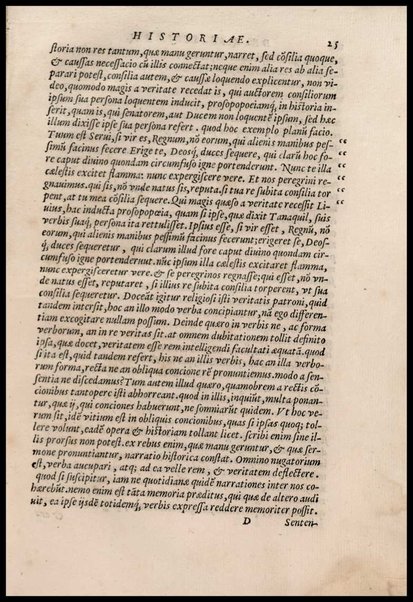 HISTORIAE. 25
storia non res tantum, quæ manu geruntur, narret, sed cōsilia quoque,
& caussas necessacio cū illis connectat; neque enim alia res ab alia se-
parari potest, consilia autem, & caussæ loquendo explicentur, non vi-
deo, quomodo magis a veritate recedat is, qui auctorem consiliorum
ipsum sua persona loquentem inducit, prosopopoeiamq́, in historia in-
serit, quam is, qui senatorem, aut Ducem non loquentē ipsum, sed hæc
illum dixisse ipse sua persona refert. quod hoc exemplo planū facio.
Tuum est Serui, si vir es, Regnum, nō eorum, qui alienis manibus pes- “
simū facinus fecere Erige te, Deosq́, duces sequere, qui clarū hoc fo- “
re caput diuino quondam circumfuso igne portenderunt. Nunc te illa “
cælestis excitet flamma: nunc expergiscere vere. Et nos peregrini re- “
gnauimus. qui sis, nō vnde natus sis, reputa. si tua re subita consilia tor “
pent, at tu mea cōsilia sequere. Qui magis quæso a veritate recessit Li-
uius, hac inducta prosopopœia, quam si ipse, quæ dixit Tanaquil, suis
verbis suaq́, persona ita rettulisset. Ipsius esse, si vir esset, Regnū, nō
eorum, qui alienis manibus pessimū facinus fecerunt; erigeret se, Deos-
q́, duces sequeretur, qui clarum illud fore caput diuino quondam cir-
cumfuso igne portenderunt. nūc ipsum illa cælestis excitaret flamma,
nunc expergisceretur vere. & se peregrinos regnasse; qui esset, nō vn-
de natus esset, reputaret, si illius re subita consilia torperent, vt sua
consilia sequeretur. Doceāt igitur religiosi isti veritatis patroni, quid
tandem intersit, hoc an illo modo verba concipiantur, nā ego differen-
tiam excogitare nullam possum. Deinde quæro in verbis ne, ac forma
verborum, an in re veritas sit. at omnem dubitationem tollit definitio
ipsa, quæ docet, veritatem esse rem intelligendi facultati æquatā. quod
si ita est, quid tandem refert, his ne an illis verbis, hac an illa verbo-
rum forma, recta ne an obliqua concione rē pronuntiemus. modo a sen-
sentia ne discedamus? Tum autem illud quæro, quamobrem a rectis cō-
cionibus tantopere isti abhorreant. quod in illis, inquiūt, multa ponan-
tur, quæ ij, qui conciones habuerunt, ne somniarūt quidem. Vt hoc ve-
rum sit, idē vitium est in obliquis concionibus, quas si ipsas quoq; tol-
lere volunt, eadē opera & historiam tollant licet. scribi enim sine il-
lis prorsus non potest. ex rebus enim, quæ manu geruntur, & quæ ser-
mone pronuntiantur, narratio historica constat. Omnino nugatorium
est, verba aucupari, atq; ad ea velle rem, & veritatem deflectere.
quod si suscipitur, iam ne quotidianæ quidē narrationes inter nos co-
hærebūt. nemo enim est tāta memoria præditus, qui quæ de altero audi
uit, ea ipse ijsdē totidemq́, verbis expressa reddere memoriter possit.
D Senten-